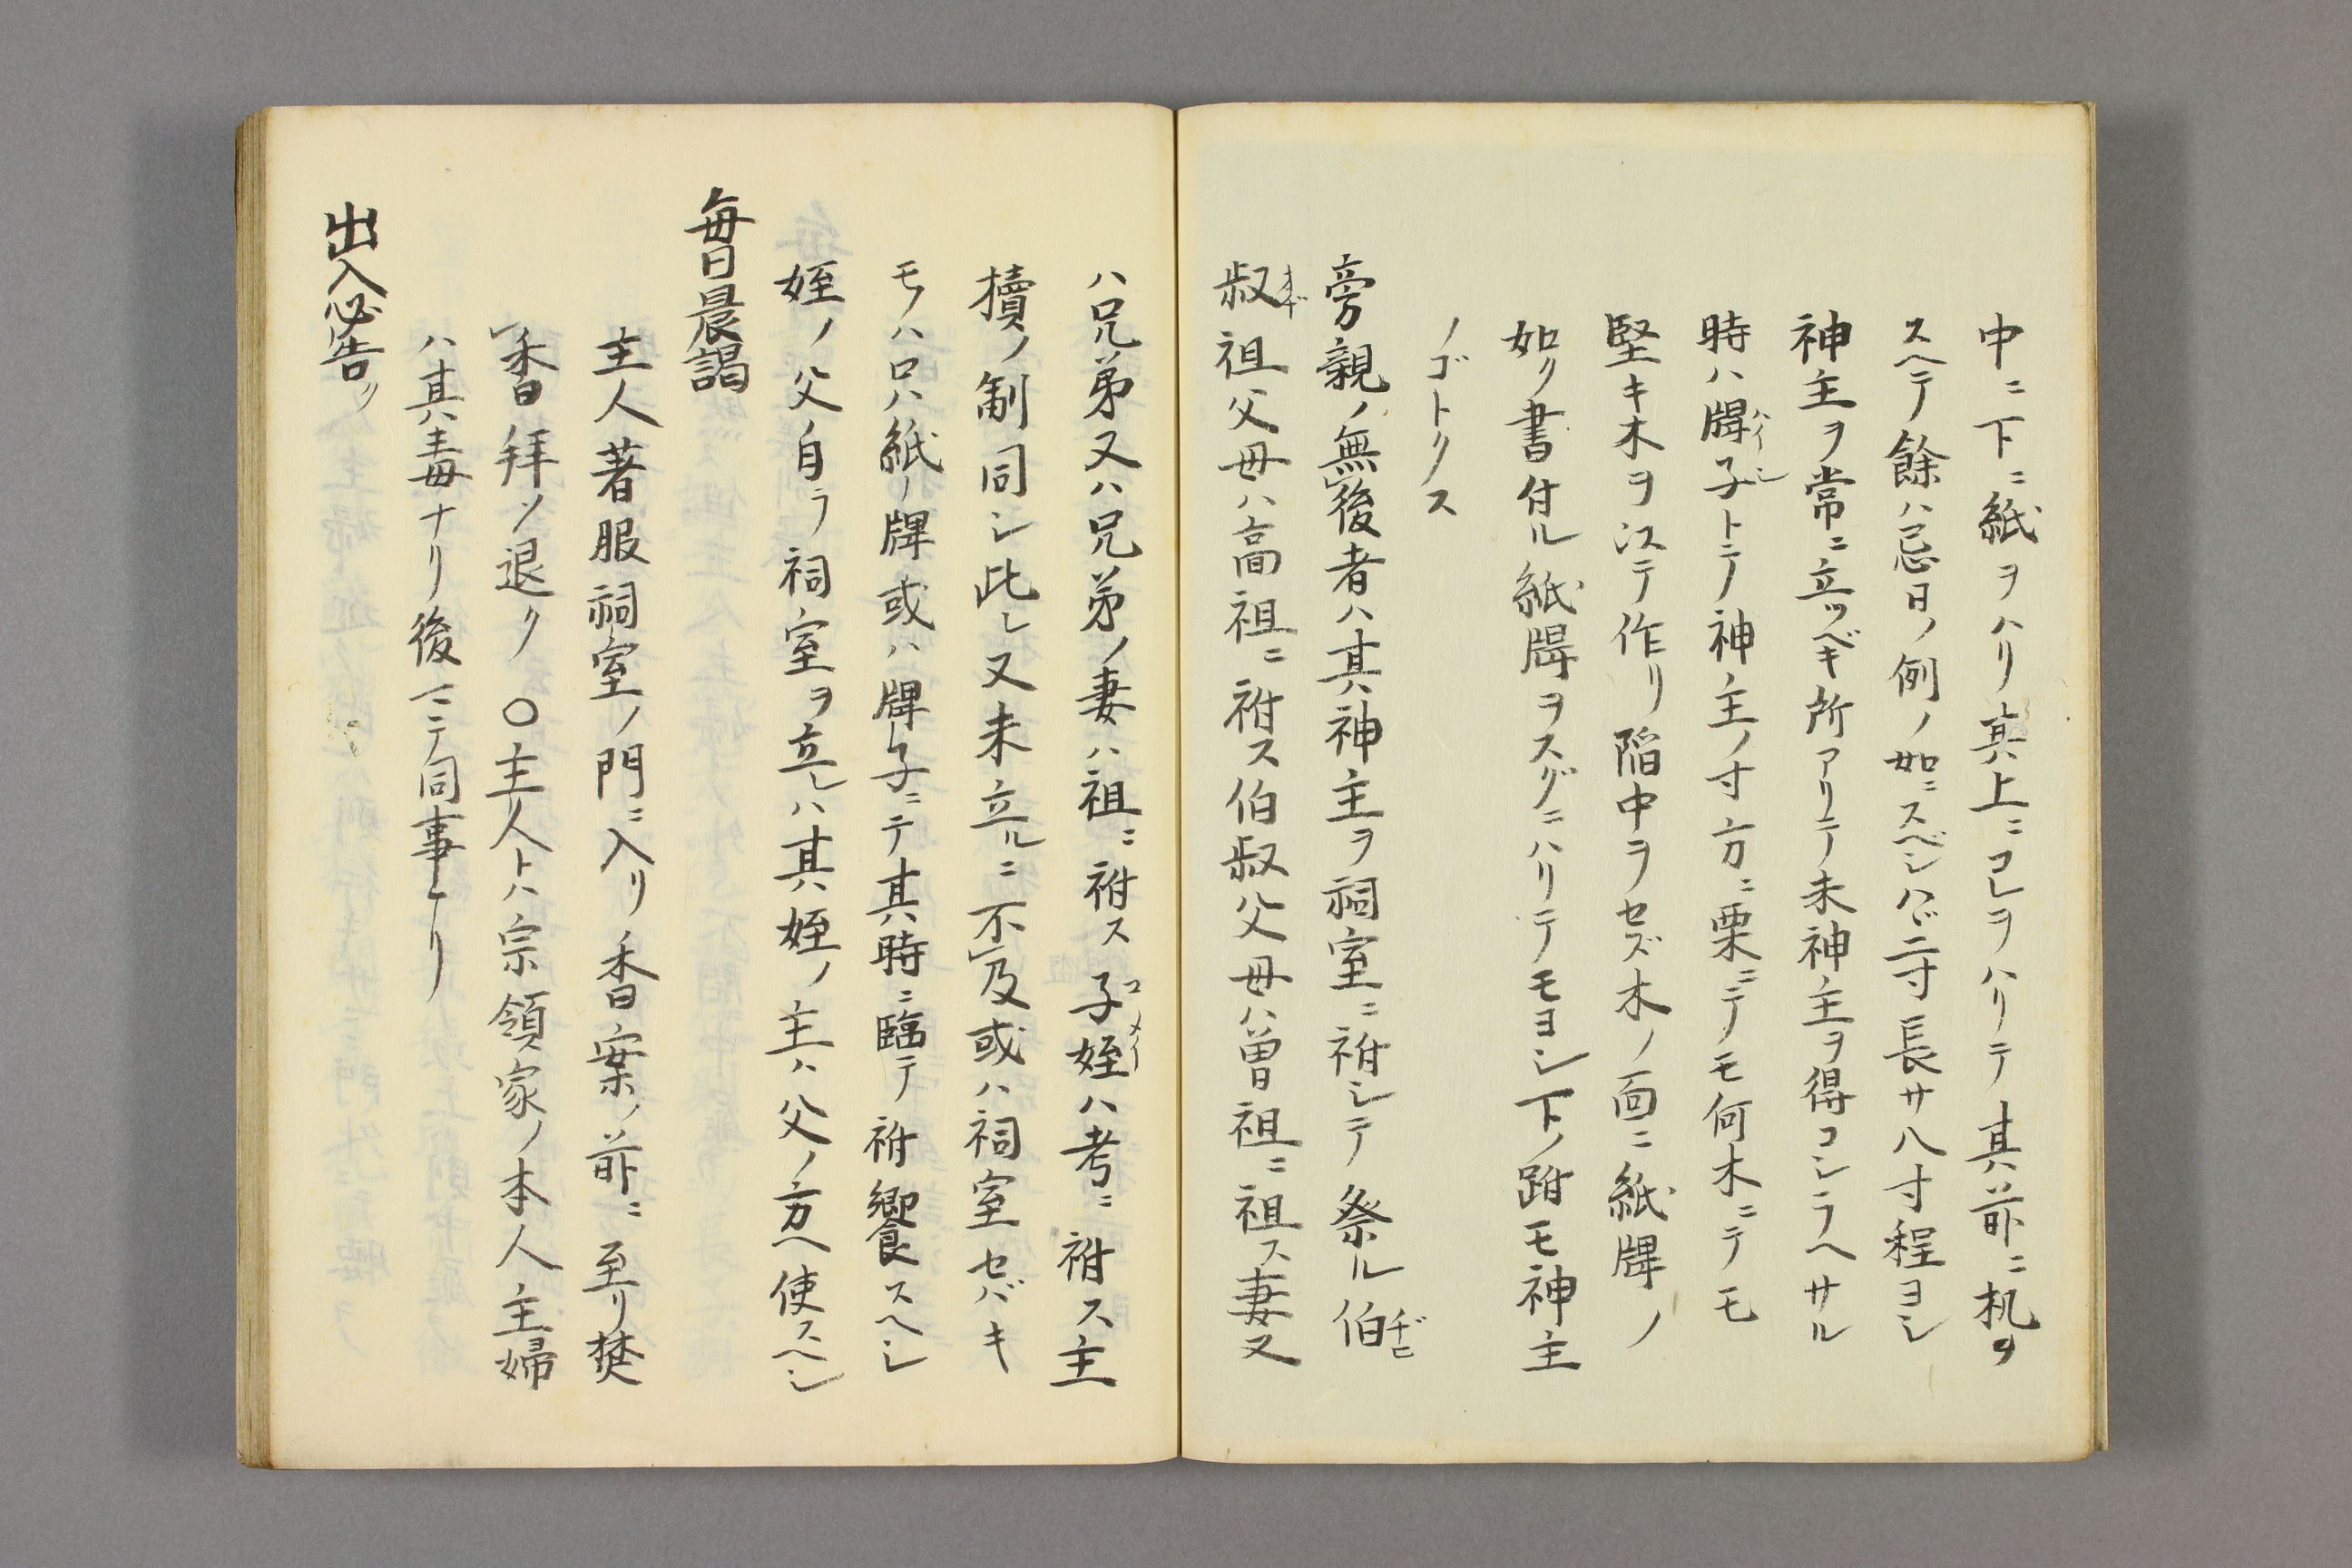 中ニ下ニ紙ヲハリ其上ニコレヲハリテ其前ニ机ヲ
スヘテ餘ハ忌日ノ例ノ如ニスベシハヾ二寸長サ八寸程ヨシ
神主ヲ常ニ立ツベキ所アリテ未神主ヲ得コシラヘサル
時ハ牌子トテ神主ノ寸方ニ栗ニテモ何木ニテモ
堅キ木ヲ以テ作リ陥中ラセズ木ノ面ニ紙牌ノ
如ク書付ル紙牌ヲスグニハリテモヨシ下ノ跗モ神主
ノゴトクス
旁親ノ無後者ハ其神主ヲ祠室ニ祔シテ祭ル伯
叔祖父母ハ高祖ニ祔ス伯叔父母ハ曽祖ニ祖ス妻又
ハ兄弟又ハ兄弟ノ妻ハ祖ニ祔ス子姪ハ考ニ祔ス主
櫝ノ制同シ此レ又未立ルニ不及或ハ祠室セバキ
モノハ只ハ紙ノ牌或ハ牌子ニテ其時ニ臨テ祔饗スヘシ
姪ノ父自ラ祠室ヲ立レハ其姪ノ主ハ父ノ方ヘ使スヘシ
毎日晨謁
主人著服祠室ノ門ニ入リ香案ノ前ニ至リ焚
香拜ソ退ク 〇主人トハ宗領家ノ本人主婦
ハ其毒ナリ後ニテ同事ナリ
出入必告ク